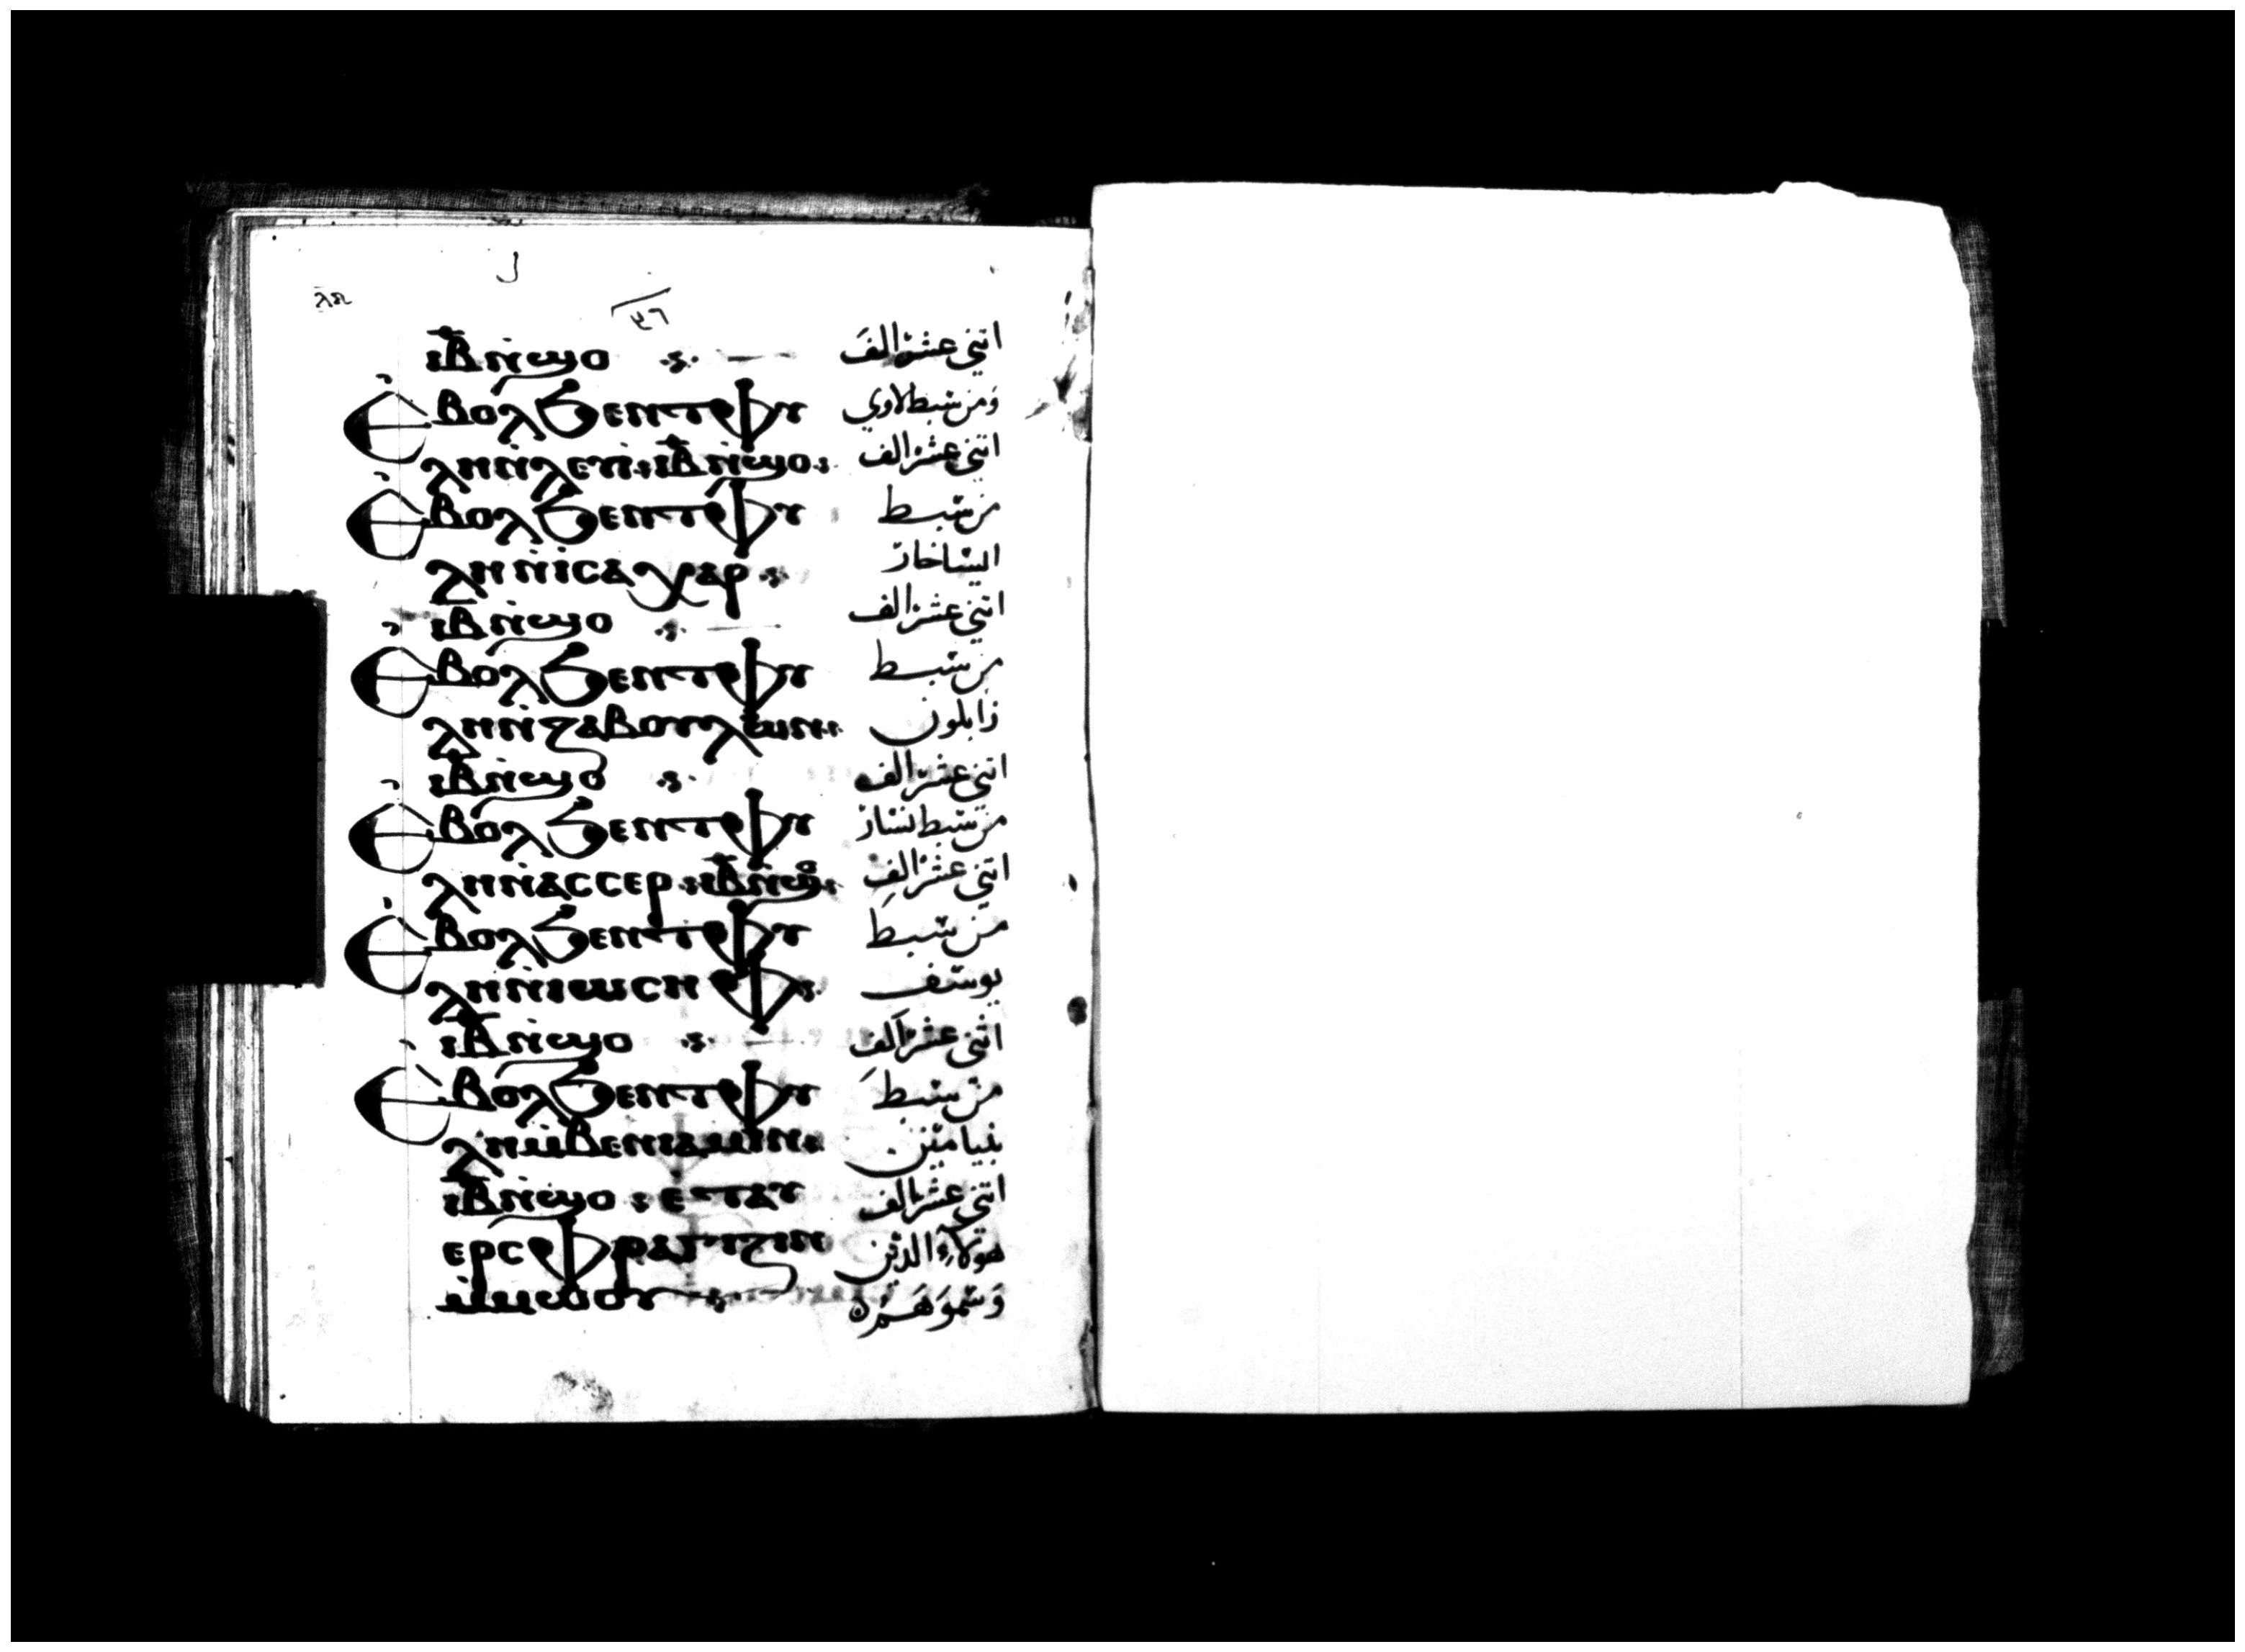 ل
ⲗⲁ
٣٦
ⲓ̅ⲃ̅ ⲛ̀ϣⲟ اتني عشر الف
Ⲉⲃⲟⲗϧⲉⲛⲧⲫⲩ ومن سبط لاوي
ⲗⲏⲛ̀ⲗⲉⲩⲓ̀ ⲓ̅ⲃ̅ ⲛ̀ϣⲟ اتني عشر الف
Ⲉⲃⲟⲗϧⲉⲛⲧⲫⲩ من سبط
ⲗⲏⲛ̀ⲓⲥⲁⲭⲁⲣ اليساخار
ⲓ̅ⲃ̅ ⲛ̀ϣⲟ اتني عشر الف
Ⲉⲃⲟⲗϧⲉⲛⲧⲫⲩ من سبط
ⲗⲏⲛ̀ⲍⲁⲃⲟⲩⲗⲱⲛ زابلون
ⲓ̅ⲃ̅ ⲛ̀ϣⲟ اتني عشر الف
Ⲉⲃⲟⲗϧⲉⲛⲧⲫⲩ من سبط
ⲗⲏⲛ̀ⲁⲥⲥⲉⲣ ⲓ̅ⲃ̅ ⲛ̀ϣⲟ اتني عشر الف
Ⲉⲃⲟⲗϧⲉⲛⲧⲫⲩ من سبط
ⲗⲏⲛ̀ⲓⲱⲥⲏⲫ يوسف
ⲓ̅ⲃ̅ ⲛ̀ϣⲟ اتني عشر الف
Ⲉⲃⲟⲗϧⲉⲛⲧⲫⲩ من سبط
ⲗⲏⲙ̀ⲃⲉⲛⲓⲁⲙⲓⲛ بنيامين
ⲓ̅ⲃ̅ ⲛ̀ϣⲟ ⲉ̀ⲧⲁⲩ اتني عشر الف
ⲉⲣⲥⲫⲣⲁⲅⲓⲍⲓⲛ هولاء الدين
ⲙ̀ⲙⲱⲟⲩ وسموهم